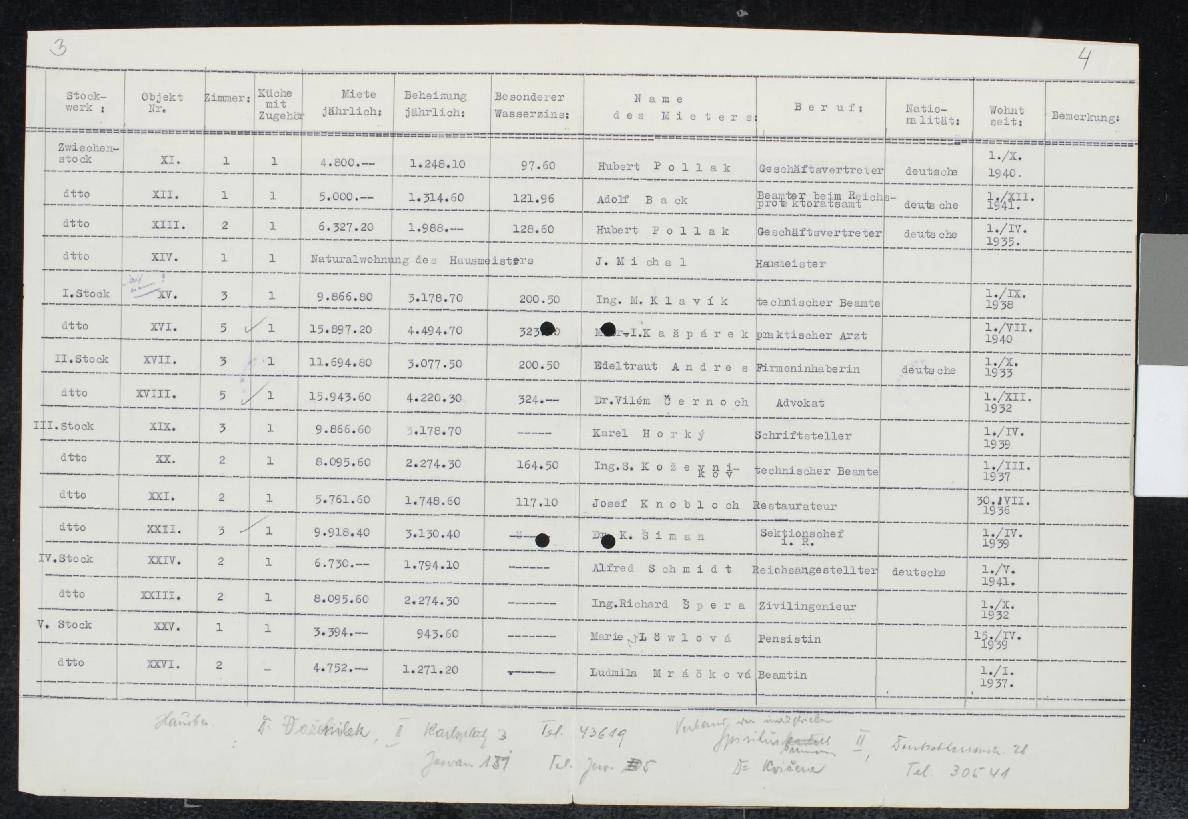 3
4
Stock-werk : Objekt Nr. Zimmer: Küche mit Zugehör Miete jährlich: Beheizung jährlich: Besonderer Wasserzins: Name des Mieters: Beruf: Natio-nalität: Wohnt seit: Bemerkung:
Zwischen-stock XI. 1 1 4.800.-- 1.248.10 97.60 Hubert Pollak Geschäftsvertreter deutsche 1./X. 1940.
dtto XII. 1 1 5.000.-- 1.314.60 121.96 Adolf Back Beamter beim Reichs-protektoratsamt deutsche 1./XII. 1941.
dtto XIII. 2 1 6.327.20 1.988.-- 128.60 Hubert Pollak Geschäftsvertreter deutsche 1./IV. 1935.
dtto XIV. 1 1 Naturalwohnung des Hausmeisters J. Michal Hausmeister
I.Stock XV. 3 1 9.866.80 3.178.70 200.50 Ing. M. Klavík technischer Beamte 1./IX. 1938
dtto XVI. 5 1 15.897.20 4.494.70 I.Kašpárek praktischer Arzt 1./VII. 1940
II.Stock XVII. 3 1 11.694.80 3.077.50 200.50 Edeltraut Andres Firmeninhaberin deutsche 1./X. 1933
dtto XVIII. 5 1 15.943.60 4.220.30 324.-- Dr.Vilém Černoch Advokat 1./XII. 1932
III.Stock XIX. 3 1 9.866.60 3.178.70 ----- Karel Horký Schriftsteller 1./IV. 1939
dtto XX. 2 1 8.095.60 2.274.30 164.50 Ing.S. Koževni-kov technischer Beamte 1./III. 1937
dtto XXI. 2 1 5.761.60 1.748.60 117.10 Josef Knobloch Restaurateur 30./VII. 1936
dtto XXII. 3 1 9.918.40 3.130.40 K. Šiman Sektionschef i. R. 1./IV. 1939
IV.Stock XXIV. 2 1 6.730.-- 1.794.10 ------- Alfred Schmidt Reichsangestellter deutsche 1./V. 1941.
dtto XXIII. 2 1 8.095.60 2.274.30 ------- Ing.Richard Špera Zivilingenieur 1./X. 1932
V. Stock XXV. 1 1 3.394.-- 943.60 ------- Marie Löwlová Pensistin 15./IV. 1939
dtto XXVI. 2 - 4.752.-- 1.271.20 ------- Ludmila Mráčková Beamtin 1./I. 1937.
II Karlsplatz 3 Tel. 43619
II,
Tel. 5 Tel. 30541